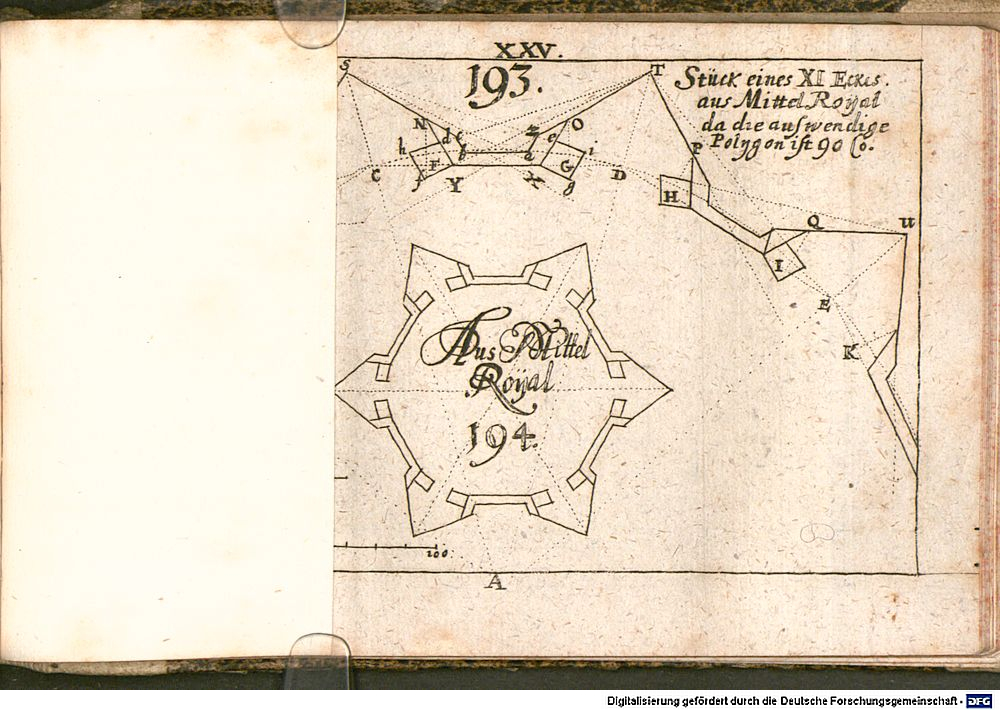 XXV.
193.
Stück eines XI Eckes.
aus Mittel Royal
da die auswendige
Polygon ist 90 Co.
S
T
N
d
c
h
b
F
f
C
Y
z
O
e
a
i
G
X
g
D
P
H
Q
u
I
E
K
Aus Mittel
Royal
194.
200.
A
Digitalisierung gefördert durch die Deutsche Forschungsgemeinschaft - DFG